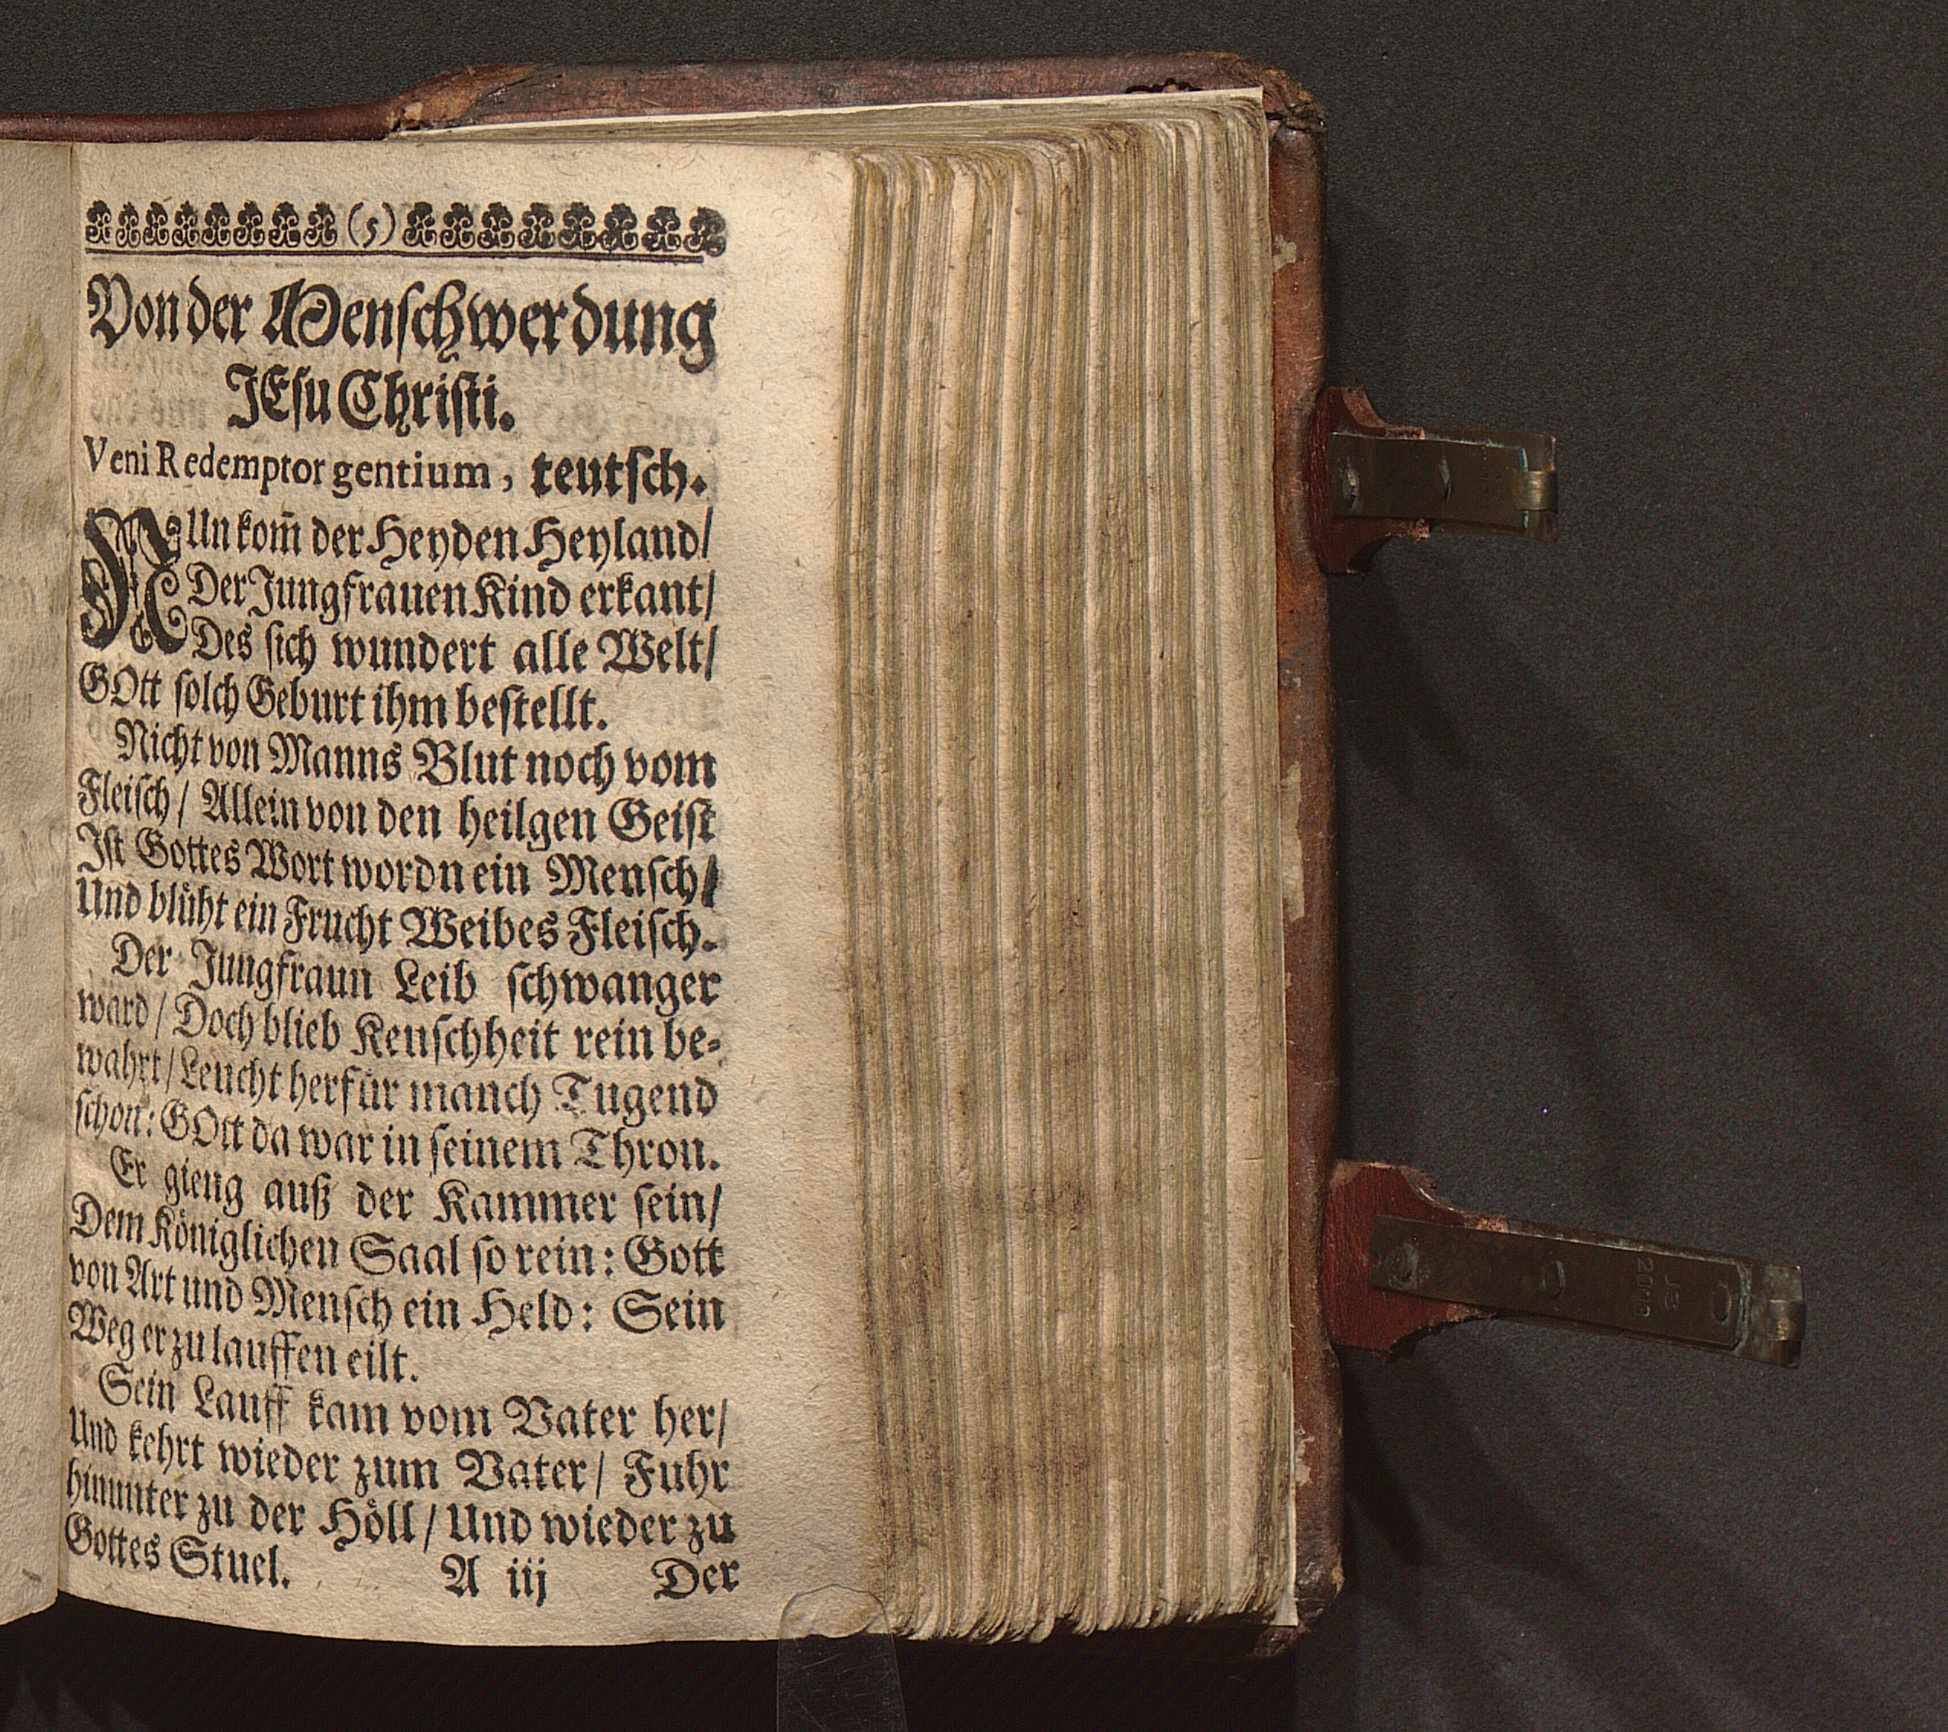 (5)
Von der Menschwerdung
JEsu Christi.
Veni Redemptor gentium, teutsch.
NUn kom̃ der Heyden Heyland/
Der Jungfrauen Kind erkant/
Des sich wundert alle Welt/
GOtt solch Geburt ihm bestellt.
Nicht von Manns Blut noch vom
Fleisch/ Allein von den heilgen Geist
Ist Gottes Wort wordn ein Mensch/
Und blüht ein Frucht Weibes Fleisch.
Der Jungfraun Leib schwanger
ward/ Doch blieb Keuschheit rein be-
wahrt/ Leucht herfür manch Tugend
schon: GOtt da war in seinem Thron.
Er gieng auß der Kammer sein/
Dem Königlichen Saal so rein: Gott
von Art und Mensch ein Held: Sein
Weg er zu lauffen eilt.
Sein Lauff kam vom Vater her/
Und kehrt wieder zum Vater/ Fuhr
hinunter zu der Höll/ Und wieder zu
Gottes Stuel. A iij Der